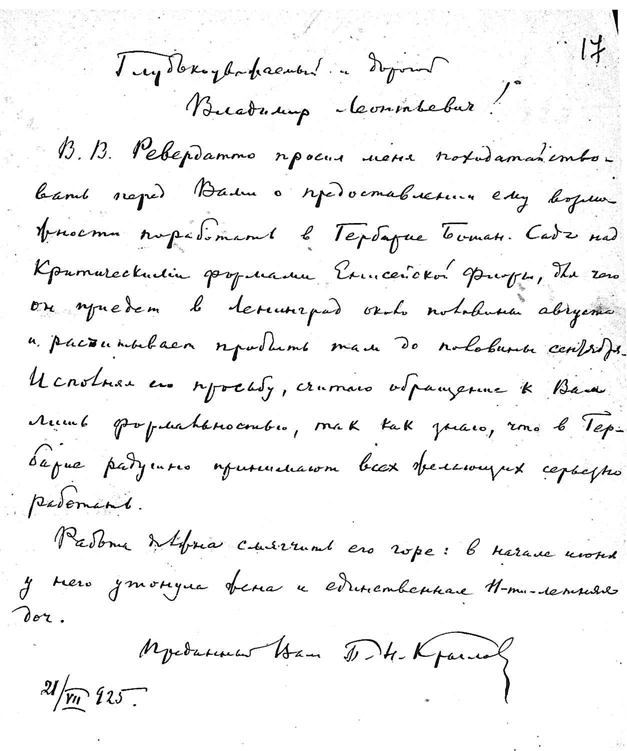 17
Глубокоуважаемый и дорогой
Владимир Леонтьевич!
В. В. Ревердатто просил меня походатайство-
вать перед Вами о предоставлении ему возмо-
жности поработать в Гербарие Ботан. Сада над
критическими формами Енисейской флоры, для чего
он приедет в Ленинград около половины августа
и расчитывает пробыть там до половины сентября.
Исполняя его просьбу, считаю обращение к Вам
лишь формальностью, так как знаю, что в Гер-
барие радушно принимают всех желающих серьезно
работать.
Работа должна смягчить его горе: в начале июня
у него утонула жена и единственная 11-ти-летняя
доч.
Преданный Вам П. Н. Крылов
21/VII 925.